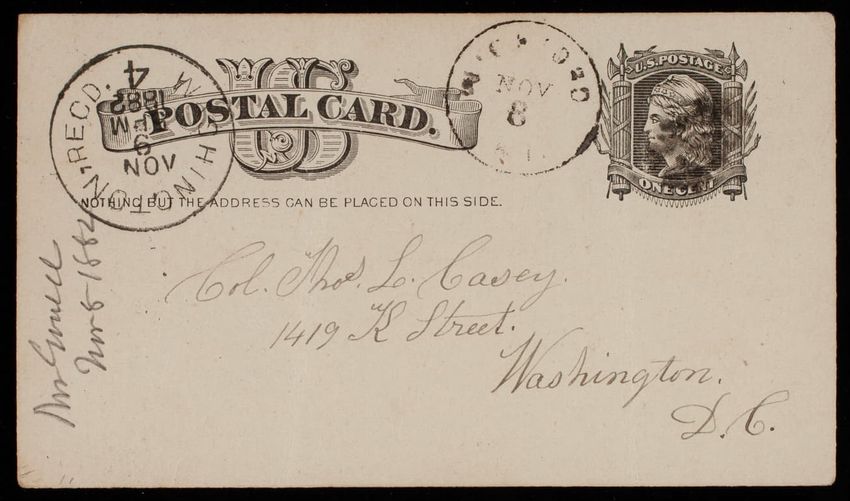 US
POSTAL CARD.
U.S. POSTAGE
ONE CENT
WASHINGTON, RECD.
NOV
9
M
1882
4
NOV
8
NOTHING BUT THE ADDRESS CAN BE PLACED ON THIS SIDE.
Col. Thos. L. Casey.
1419 K Street.
Washington.
D.C.
Nov 8 1882